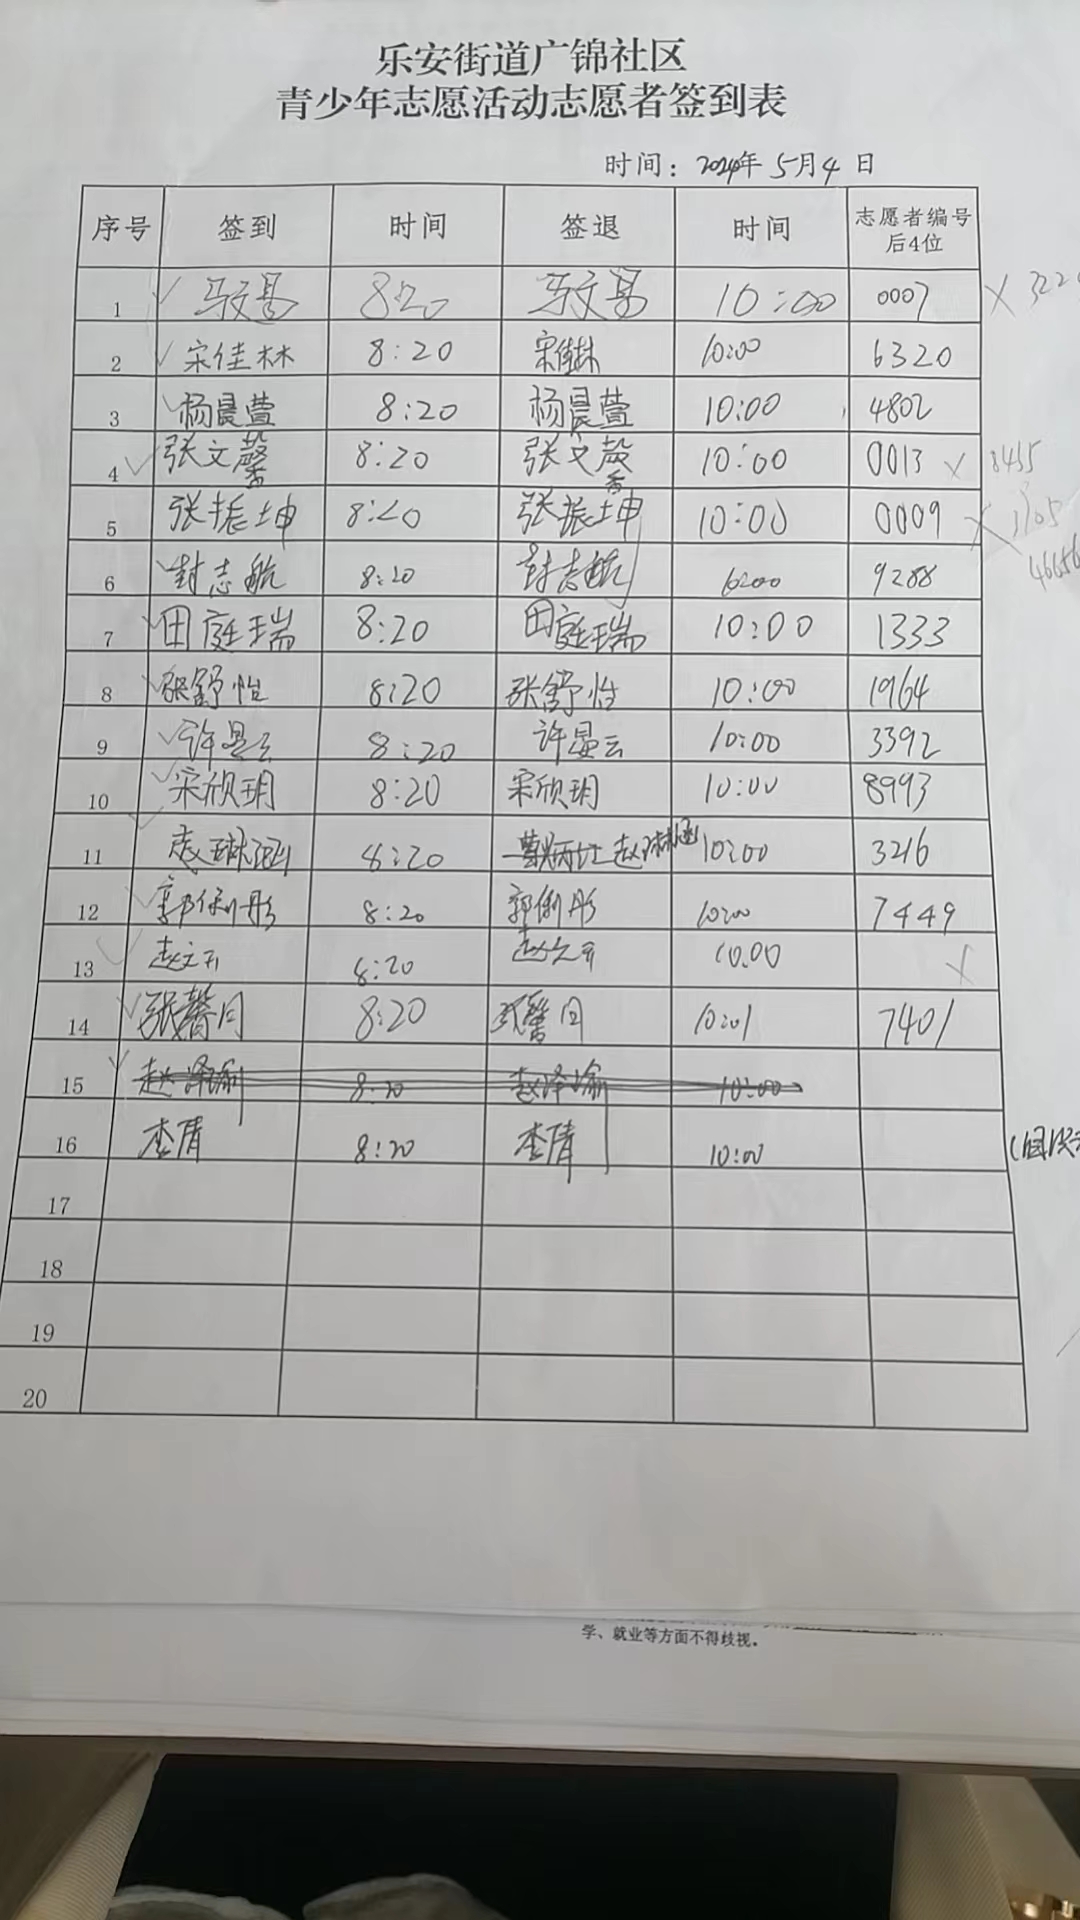 乐安街道广锦社区
青少年志愿活动志愿者签到表
时间：2024年 5月 4 日
序号 签到 时间 签退 时间 志愿者编号后4位
1 820 10:00 0007 X
2 宋佳林 8:20 宋佳林 10:00 6320
3 杨晨萱 8:20 杨晨萱 10:00 4802
4 张文馨 8:20 张文馨 10:00 0013 X 8455
5 张振坤 8:20 张振坤 10:00 0009 X
6 封志航 8:20 封志航 1000 9288
7 田庭瑞 8:20 田庭瑞 10:00 1333
8 张舒怡 8:20 张舒怡 10:00 1964
9 许显云 8:20 许显云 10:00 3392
10 宋欣玥 8:20 宋欣玥 10:00 8993
11 赵琳涵 8:20 赵琳涵 10:00 3216
12 郭俐彤 8:20 郭俐彤 10:00 7449
13 8:20 10.00 X
14 张馨月 8:20 张馨月 10:01 7401
15 赵泽瑜 8:20 赵泽瑜 10:00
16 李倩 8:20 李倩 10:00
17
18
19
20
学、就业等方面不得歧视。